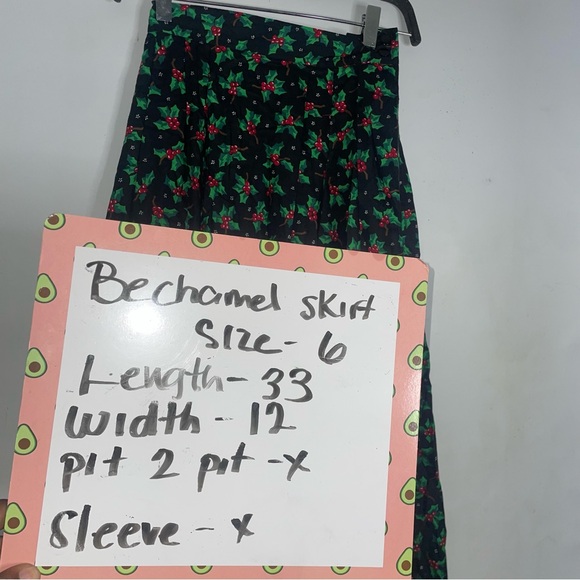 Bechamel skirt
Size - 6
Length - 33
width - 12
pit 2 pit - x
Sleeve - x